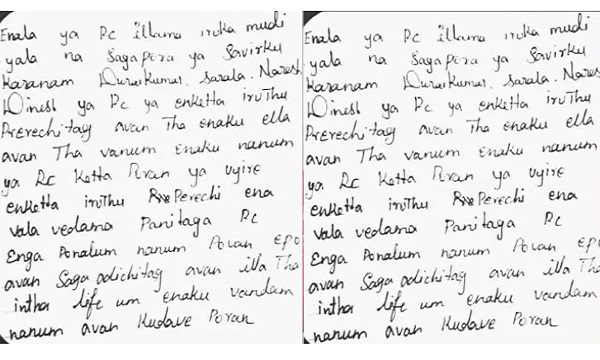 Enala ya Pc illama iruka mudi
yala na Sagapora ya Savirku
Karanam Duraikumar, Sarala, Naresh
Dinesh ya Pc ya enketta iruThu
Prerechitag avan Tha enaku ella
avan Tha vanum Enaku nanum
ya Pc Ketta Poran ya uyire
enketta iruthu Perechi ena
Vala vedama Panitaga Pc
Enga Ponalum nanum Poran Epo
avan Saga adichitag avan illa Tha
intha life um enaku vandam
nanum avan Kudave Poran
Enala ya Pc illama iruka mudi
yala na Sagapora ya Savirku
Karanam Duraikumar, Sarala, Nares
Dinesh ya Pc ya enketta iruThu
Prerechitag avan Tha enaku ella
avan Tha vanum Enaku nanum
ya Pc Ketta Poran ya uyire
enketta iruthu Perechi ena
Vala vedama Panitaga Pc
Enga Ponalum nanum Poran Epo
avan Saga adichitag avan illa Tha
intha life um enaku vandam
nanum avan Kudave Poran